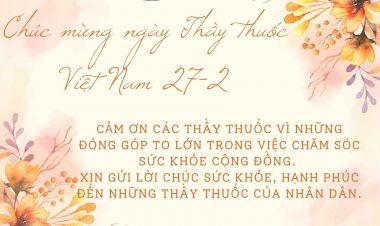 Chúc mừng ngày Thầy thuốc
Việt Nam 27-2
CẢM ƠN CÁC THẦY THUỐC VÌ NHỮNG
ĐÓNG GÓP TO LỚN TRONG VIỆC CHĂM SÓC
SỨC KHỎE CỘNG ĐỒNG.
XIN GỬI LỜI CHÚC SỨC KHỎE, HẠNH PHÚC
ĐẾN NHỮNG THẦY THUỐC CỦA NHÂN DÂN.